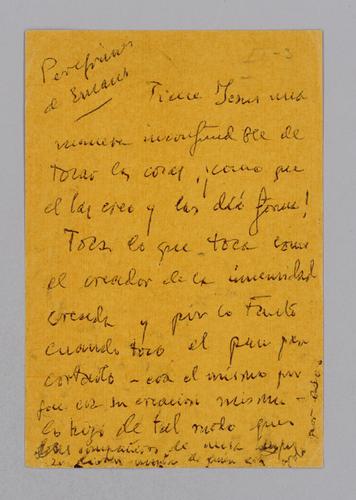 Peregrinos
de Emaus
II-3
Tiene Jesus una
manera inconfundible de
tocar las cosas, ¡como que
el las creo y las dió forma!
Toca lo que toca como
el creador de la inmensidad
creada y por lo tanto
cuando toco el pan para
cortarlo - era el mismo por
que era su creacion misma -
lo hizo de tal modo que
los compañeros de mesa